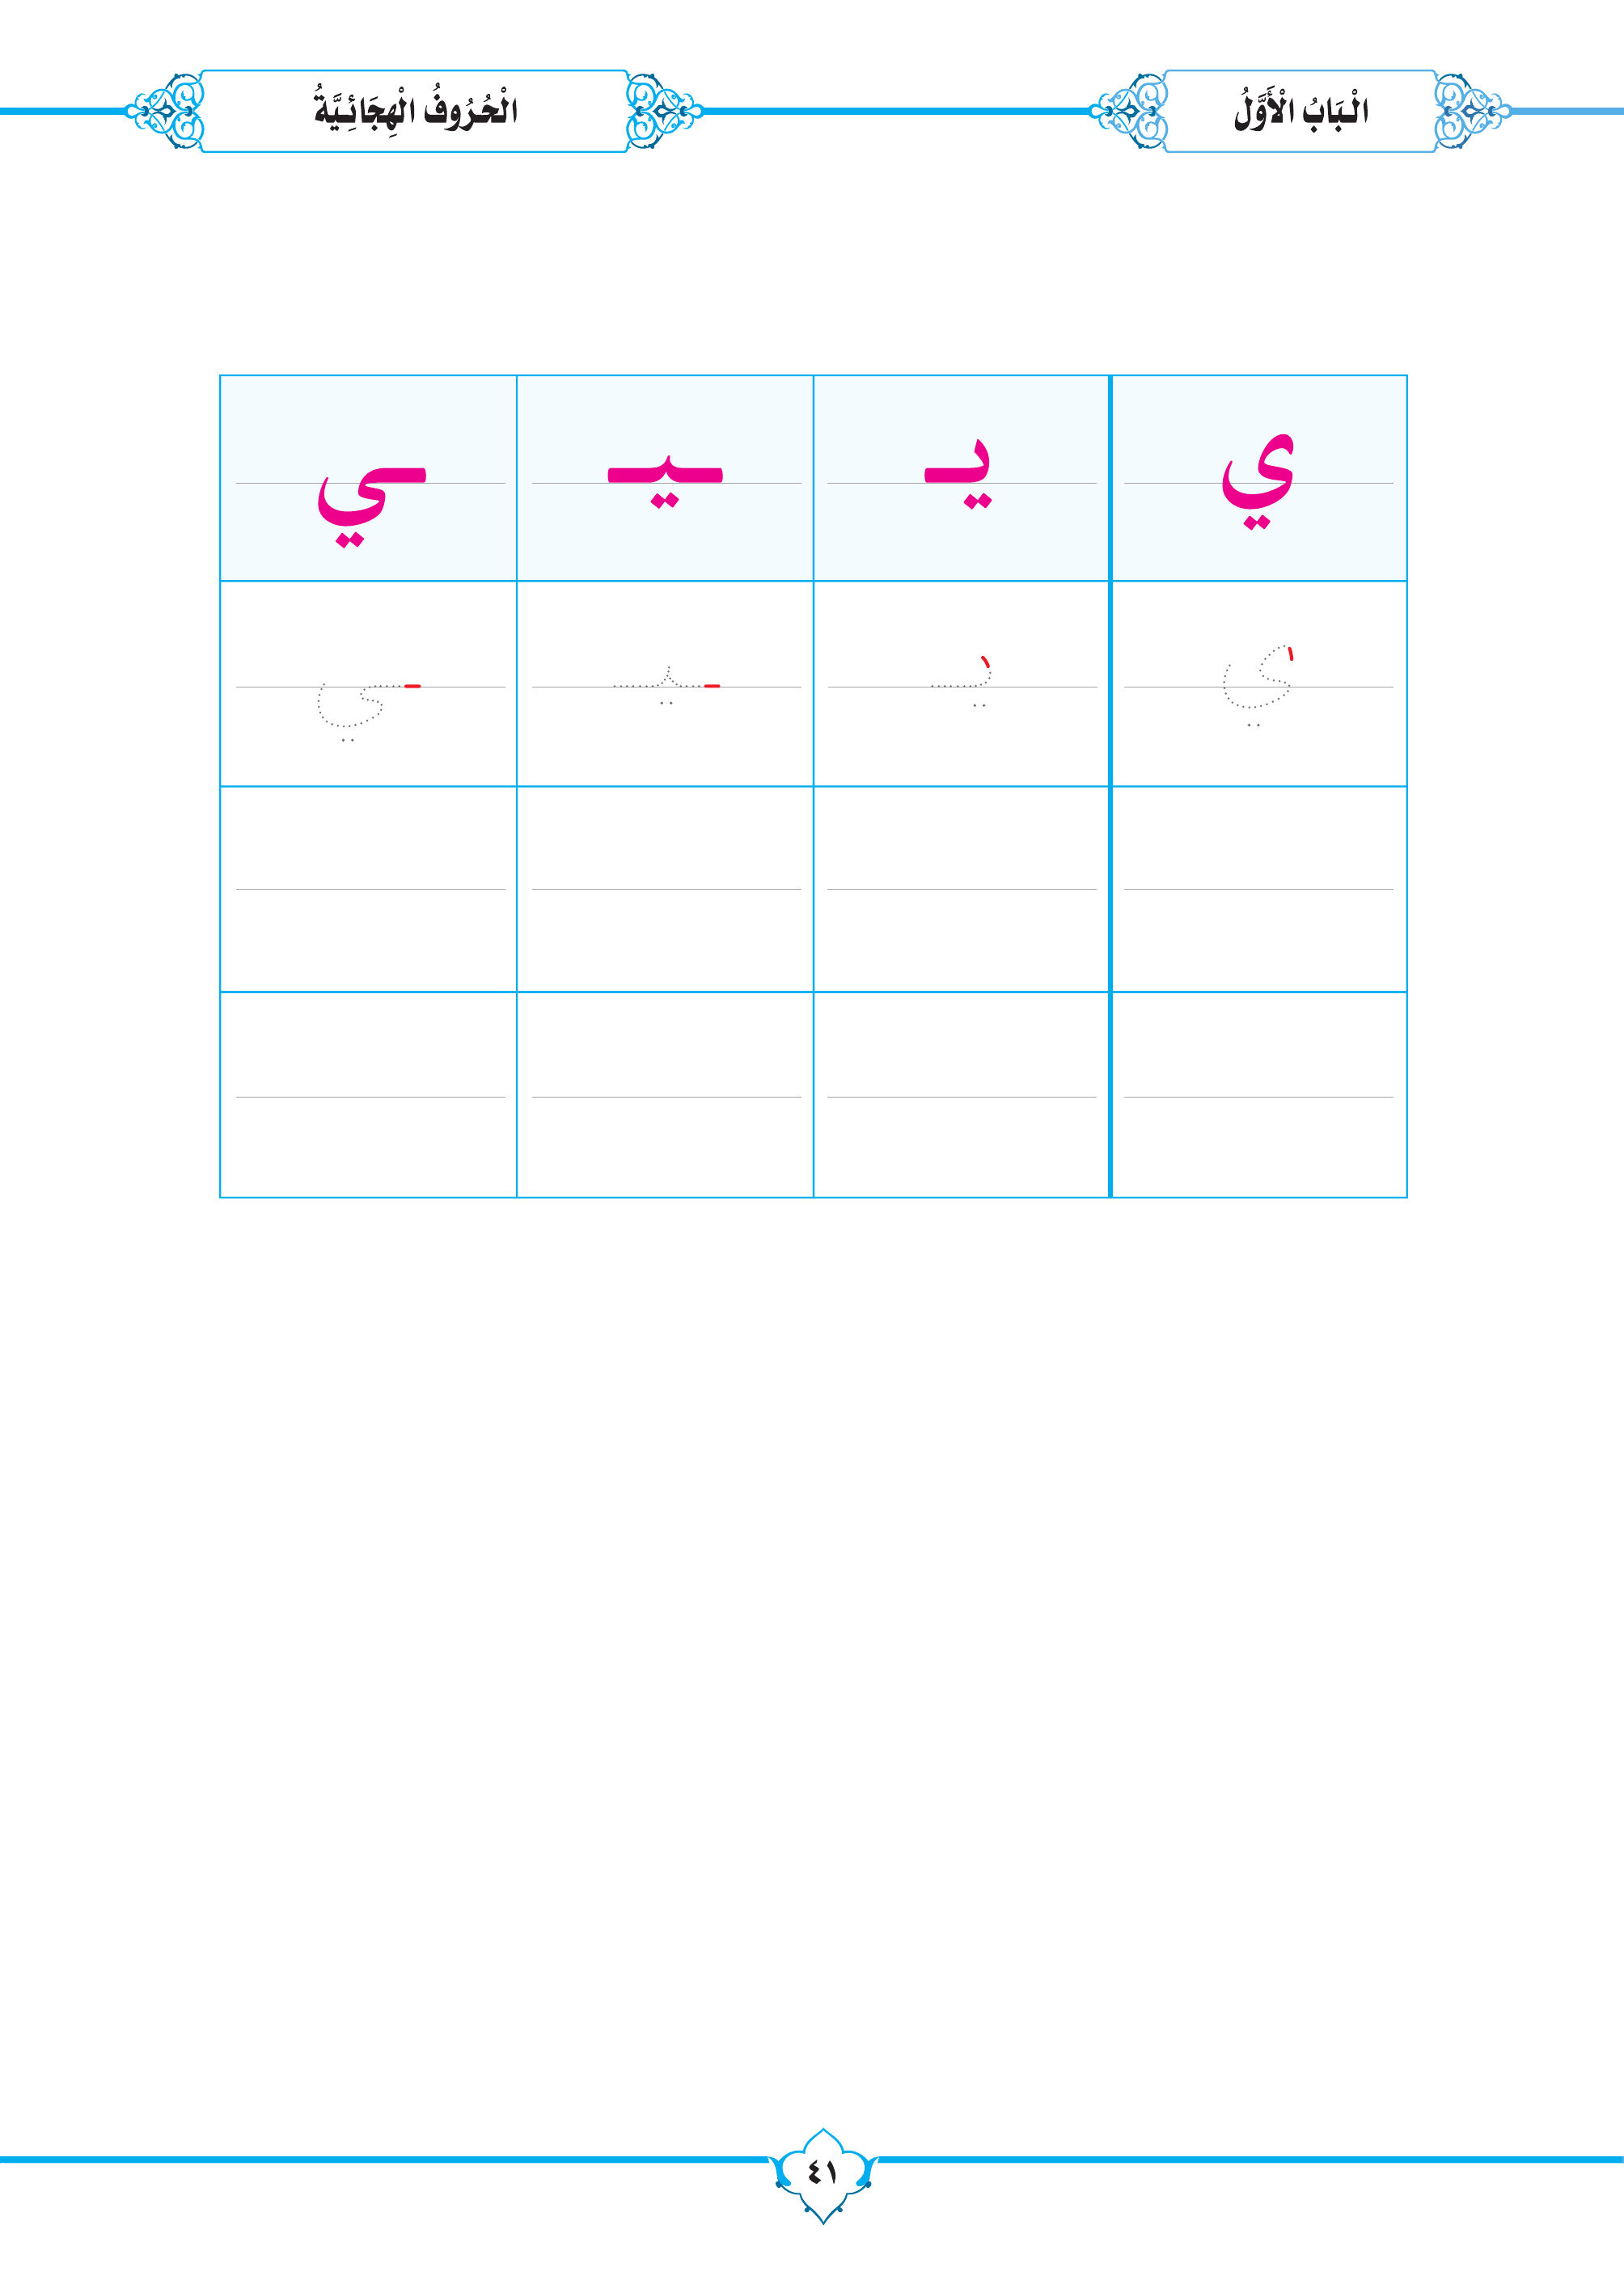 الْبَابُ الْأَوَّلُ
الْحُرُوفُ الْهِجَائِيَّةُ
ي يـ ـيـ ـي
ي يـ ـيـ ـي
٤١